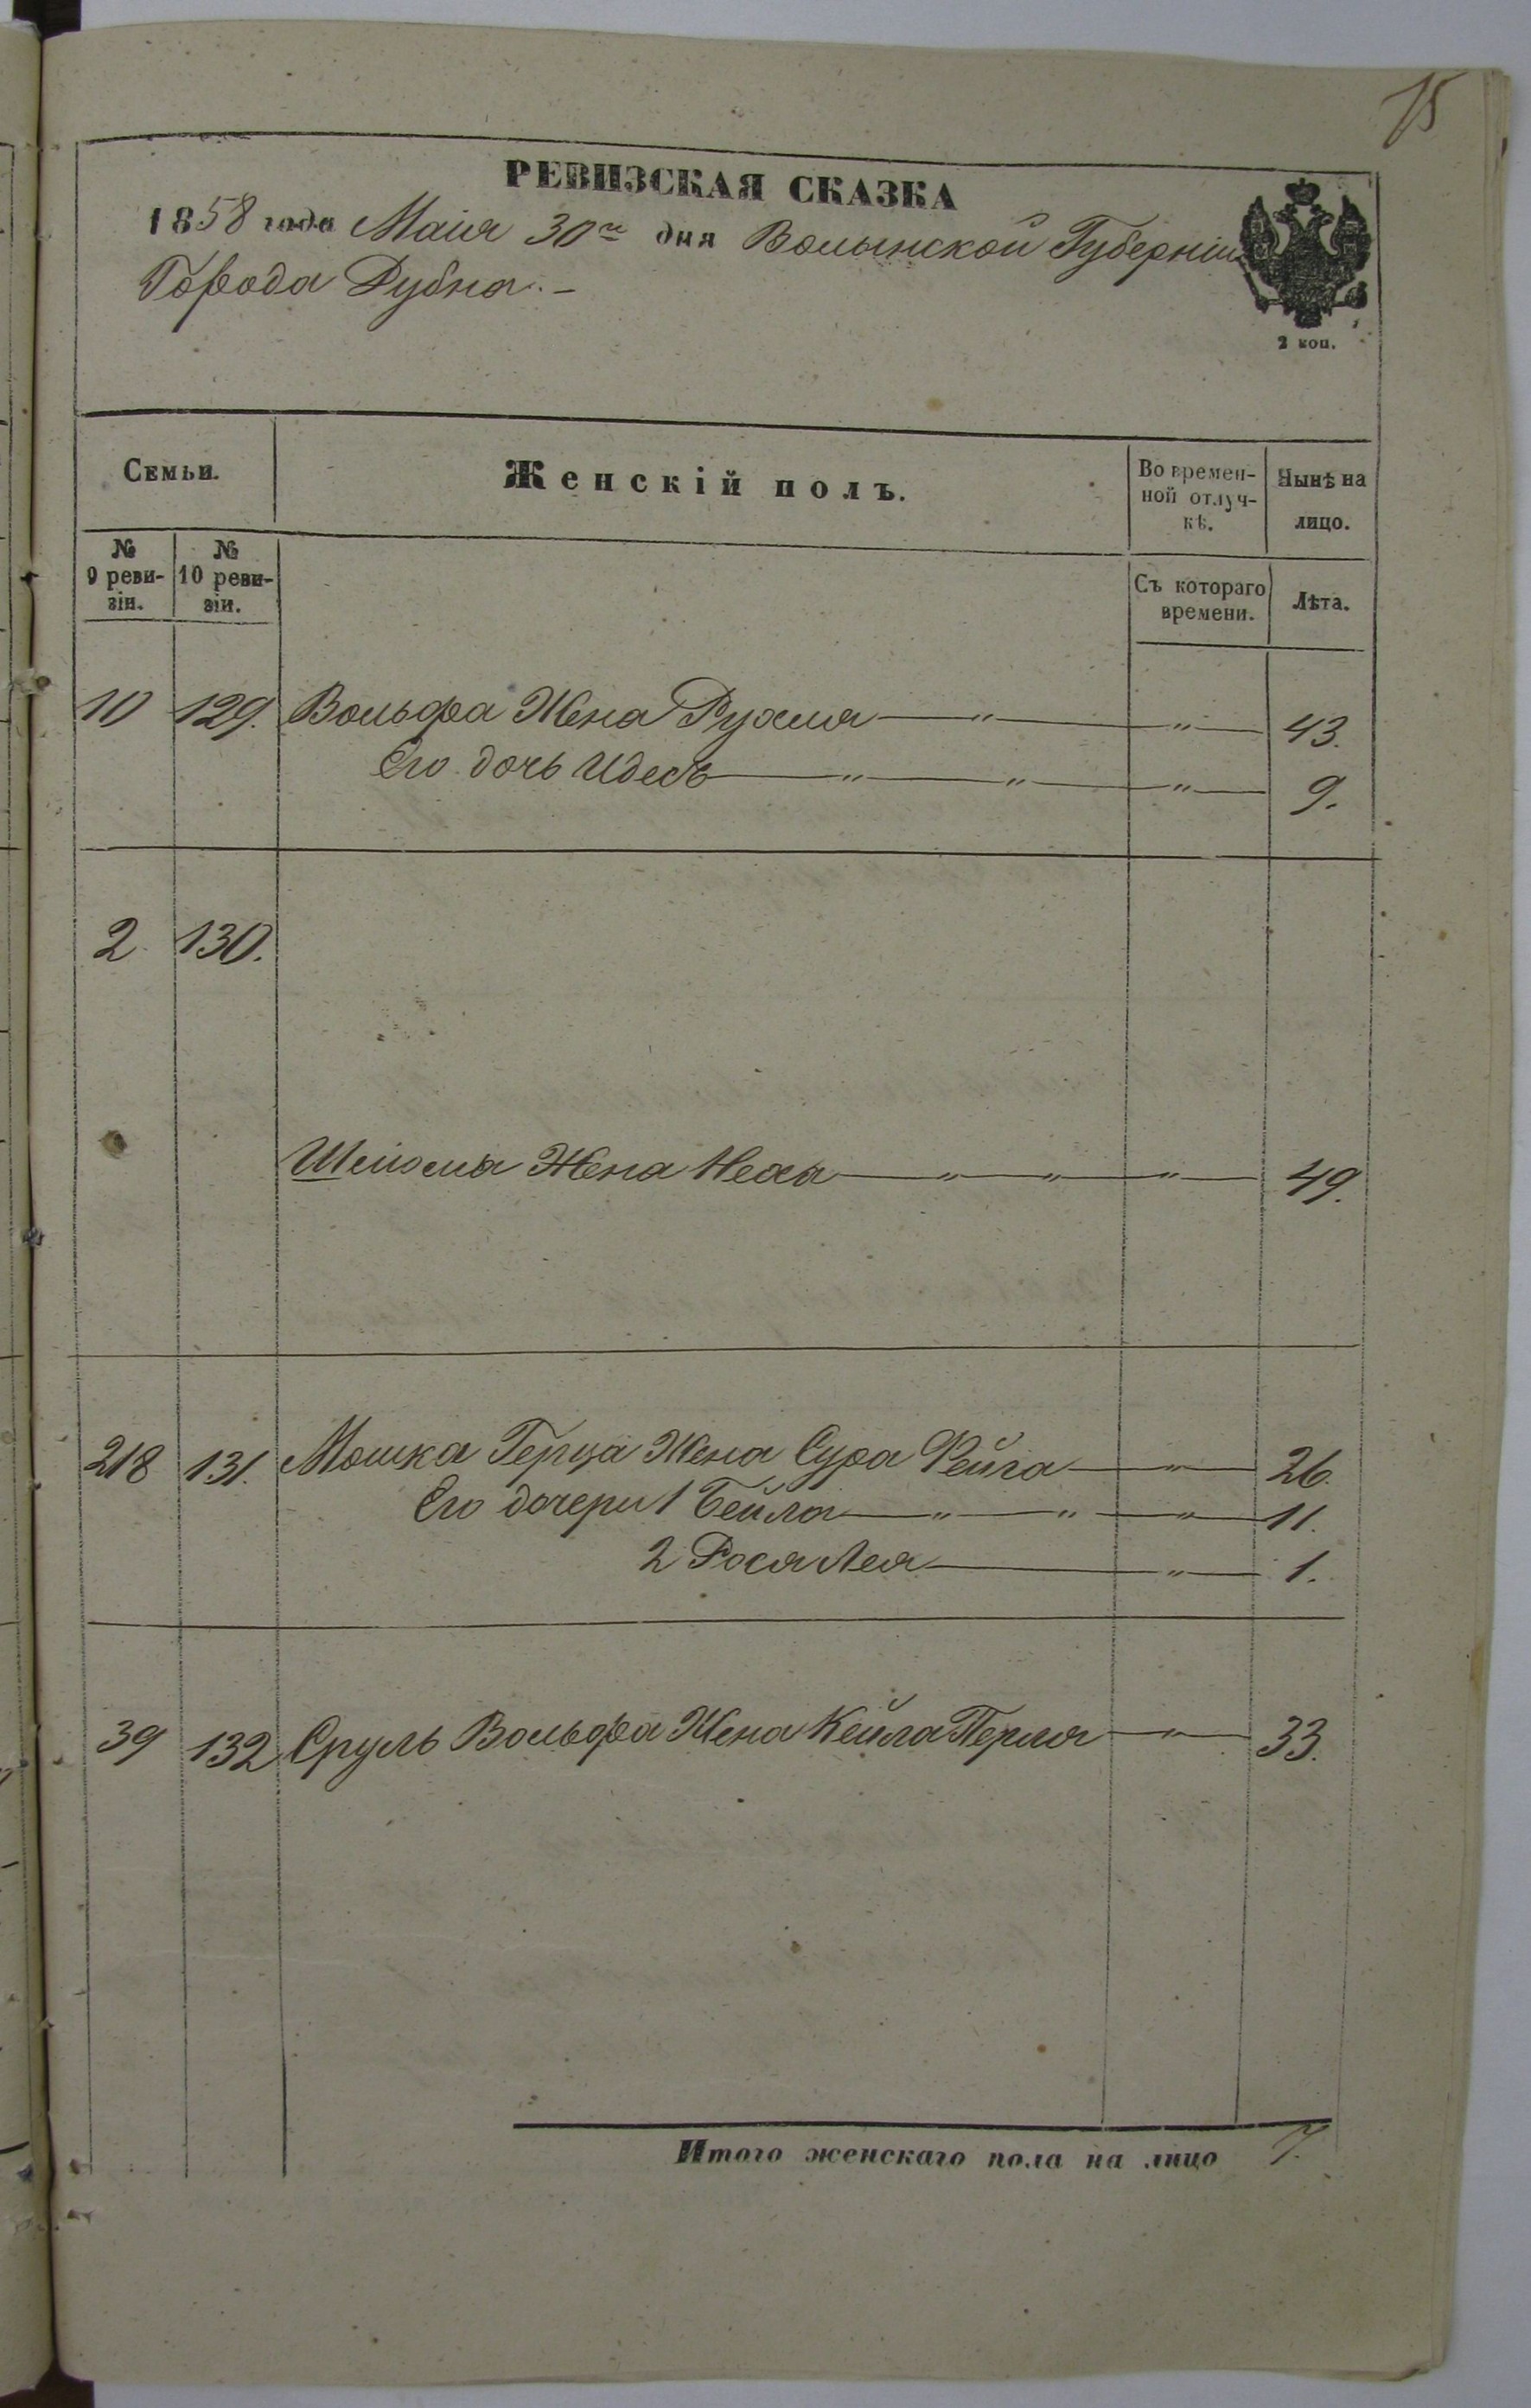 15
РЕВИЗСКАЯ СКАЗКА
1858 года Маія 30го дня Волынской Губерніи
Города Дубна. -
2 коп.
Семьи.
Женскій полъ.
Во времен-
ной отлуч-
кѣ.
Нынѣ на
лицо.
№
9 реви-
зіи.
№
10 реви-
зіи.
Съ котораго
времени.
Лѣта.
10 129. Вольфа Жена Рухля — " — " — 43.
Его дочь Идесь — " — " — " — 9.
2 130.
Шлиома Жена Неха — " — " — " — 49.
218 131. Мошка Герца Жена Сура Фейга — " — 26.
Его дочери 1 Бейла — " — " — " — 11.
2 Рося Лея — " — 1.
39 132 Сруль Вольфа Жена Кейла Перля — " — 33.
Итого женскаго пола на лицо 7.